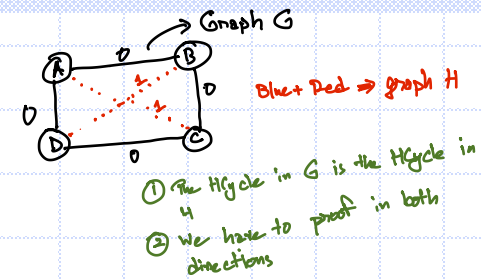 Graph G
A 0 B
1
Blue + Red ⇒ graph H
0 0
1
D 0 C
① The HCycle in G is the HCycle in
H
② We have to proof in both
directions